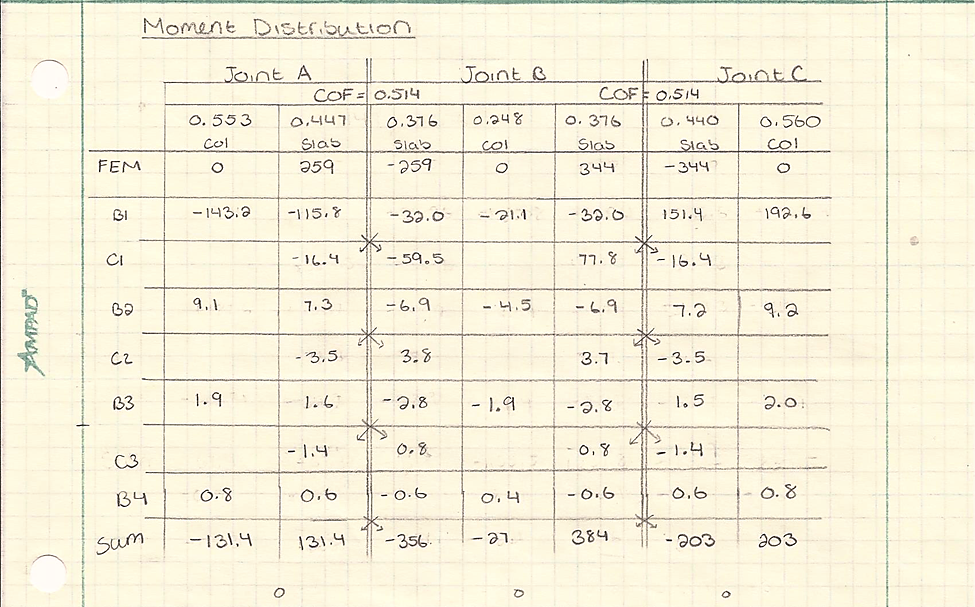 Moment Distribution
Joint A Joint B Joint C
COF = 0.514 COF = 0.514
0.553 0.447 0.376 0.248 0.376 0.440 0.560
Col Slab Slab Col Slab Slab Col
FEM 0 259 -259 0 344 -344 0
B1 -143.2 -115.8 -32.0 -21.1 -32.0 151.4 192.6
C1 -16.4 -59.5 77.8 -16.4
B2 9.1 7.3 -6.9 -4.5 -6.9 7.2 9.2
C2 -3.5 3.8 3.7 -3.5
B3 1.9 1.6 -2.8 -1.9 -2.8 1.5 2.0
C3 -1.4 0.8 0.8 -1.4
B4 0.8 0.6 -0.6 0.4 -0.6 0.6 0.8
Sum -131.4 131.4 -356 -27 384 -203 203
0 0 0
AMPAD